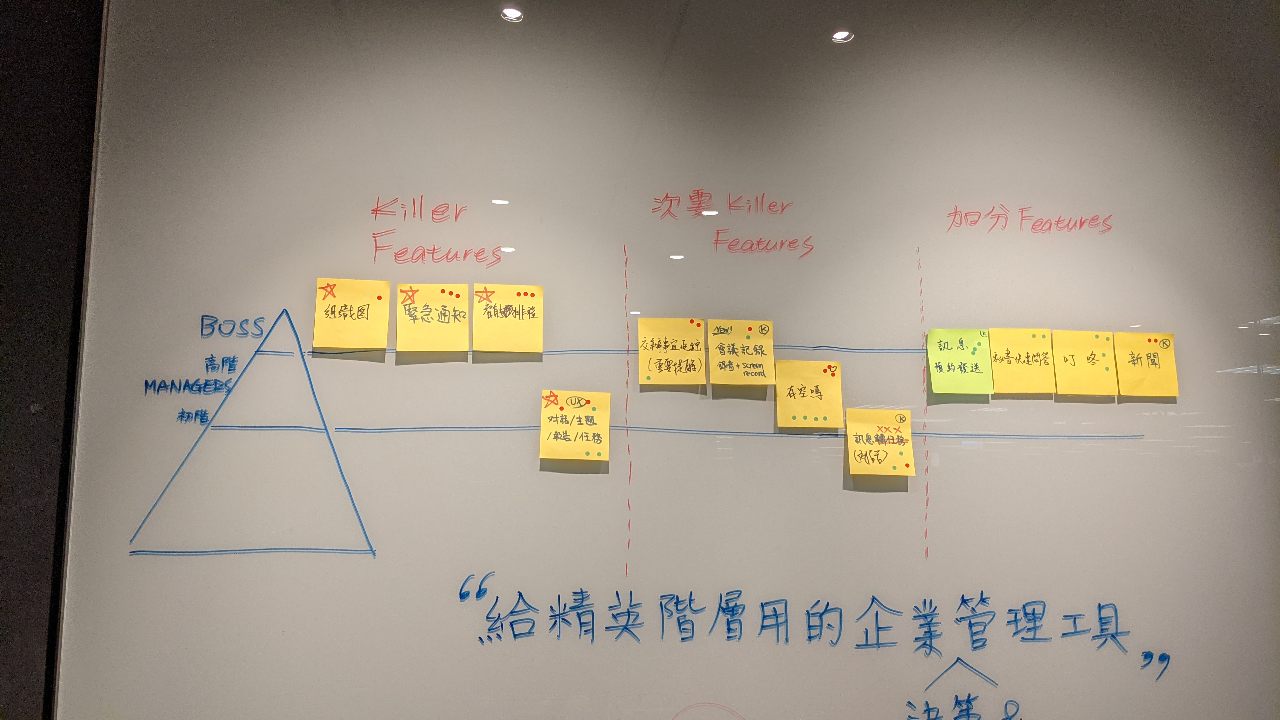 Killer
Features
次要 Killer
Features
加分 Features
BOSS
高階
MANAGERS
初階
組織图
緊急通知
排程
UX
对話/主題
/任務
交辦事宜
New!
K
會議記錄
錄音+screen
record
有空嗎
K
xxx
訊息轉任務
訊息
預約發送
秘書快速問答
叮咚
K
新聞
“給精英階層用的企業管理工具”
決策 &